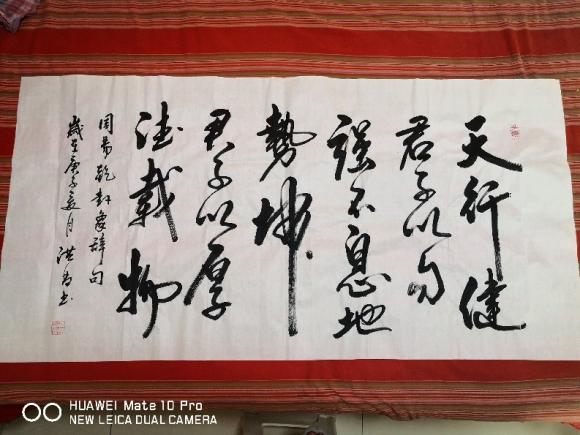 天行健
君子以自
强不息地
勢坤
君子以厚
德載物
周易乾卦象辞句
歲在庚子夏月洪
HUAWEI Mate 10 Pro
NEW LEICA DUAL CAMERA